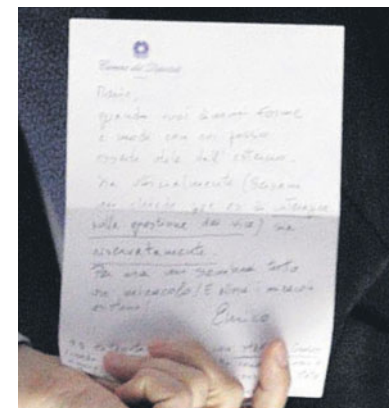 Camera dei Deputati
Mario,
quando vuoi dimmi forme
e modi con cui posso
esserti utile dall'esterno.
Sia ufficialmente (Bersani
mi chiede per es. di interagire
sulla questione dei vice) sia
riservatamente.
Per ora mi sembra tutto
un miracolo! E allora i miracoli
esistono!
Enrico